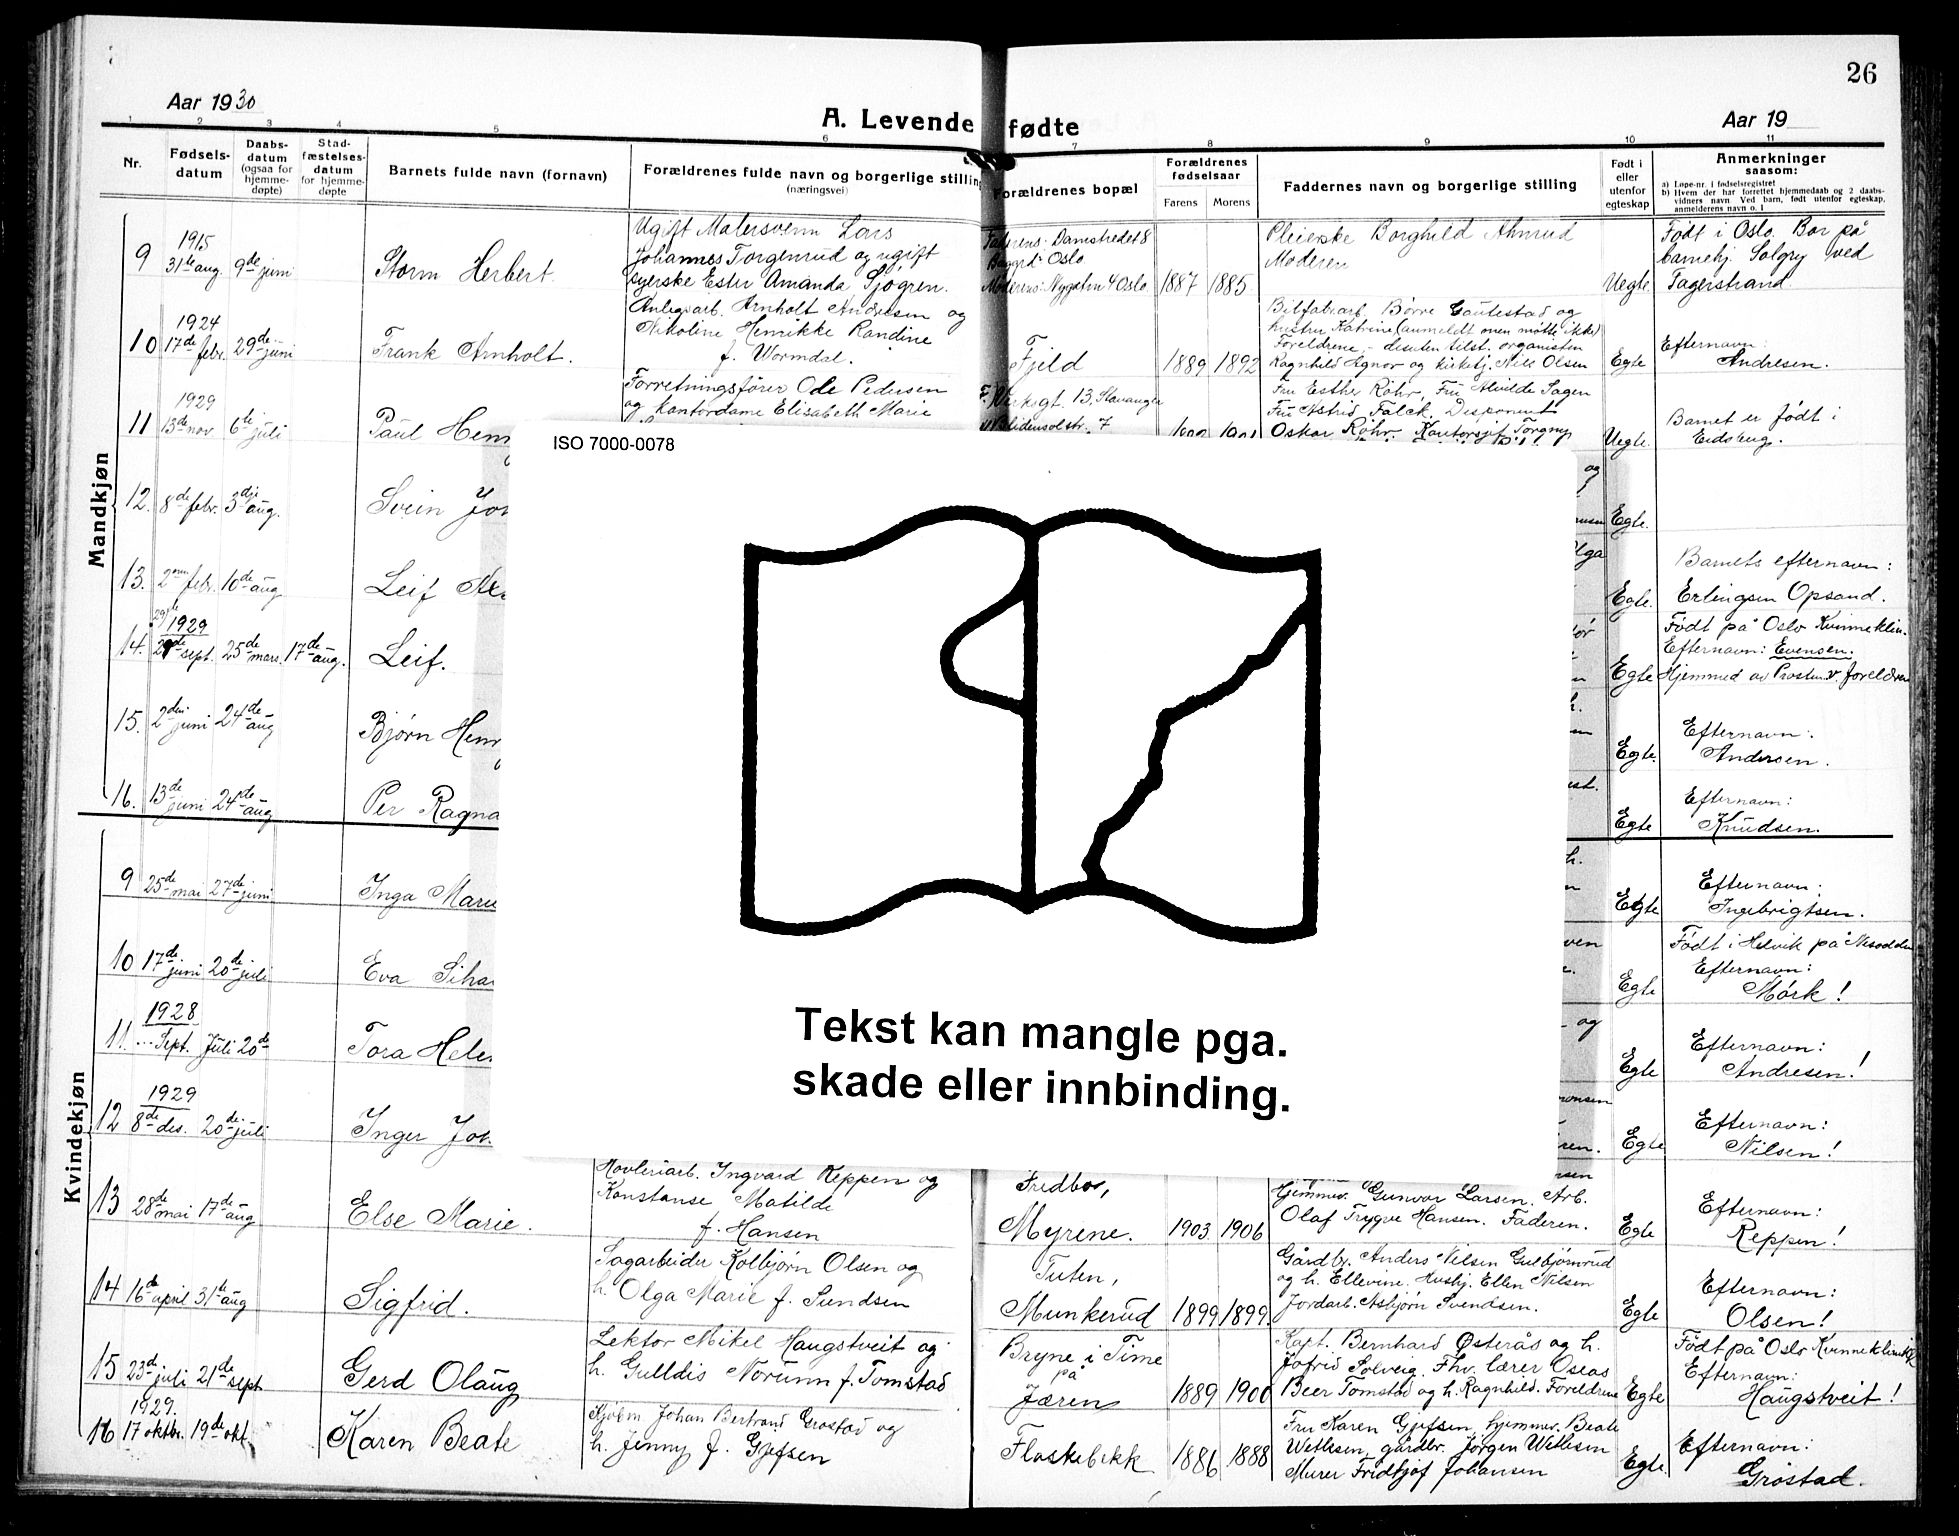 26
Aar 1930
A. Levende fødte
Aar 19
1 2 3 4 5 6 7 8 9 10 11
Nr.
Fødsels-
datum
Daabs-
datum
(ogsaa for
hjemme-
døpte)
Stad-
fæstelses-
datum
for hjemme-
døpte
Barnets fulde navn (fornavn)
Forældrenes fulde navn og borgerlige stilling
(næringsvei)
Forældrenes bopæl
Forældrenes
fødselsaar
Farens Morens
Faddernes navn og borgerlige stilling
Født i
eller
utenfor
egteskap
Anmerkninger
saasom:
a) Løpe-nr. i fødselsregistret
b) Hvem der har forrettet hjemmedaab og 2 daabs-
vidners navn Ved barn, født utenfor egteskap,
anmelderens navn o. l
Mandkjøn
9 1915 31te aug. 9de juni
Storm Herbert.
Ugift Malersvenn Lars
Johannes Torgenrud og ugift
syerske Ester Amanda Sjøgren.
Faderens: Damstredet 8
Oslo
Moderens: Nygaten 4 Oslo
1887 1885
Pleierske Borghild Ahnrud
Moderen
Uegte
Født i Oslo. Bor på
barnehj. Solgry ved
Fagerstrand.
10 1924 17de febr. 29de juni
Frank Arnholt.
Anlegsarb. Arnholt Andresen og
Nikoline Henrikke Randine
f. Wormdal.
Fjeld
1889 1892
Bilfabrarb. Børre Gautestad og
hustru Katrine (anmeldt men møtte ikke)
Foreldrene - desuten tilst. organisten
Ragnhild Agnor og kirketj. Nils Olsen
Egte
Efternavn:
Andresen.
11 1929 13de nov 6te juli
Paul Henr
Forretningsfører Ole Pedersen
og kontordame Elisabeth Marie
13. Stavanger
7
Fru Esther Röhr, Fru Alvilde Sagen
Fru Astrid Falck. Disponent
Oskar Röhr. Kontorsjef Torgny
Uegte.
Barnet er født i
Eidsberg.
12. 8de febr. 3dje aug.
Svein Jo
og
Egte.
13. 2nen febr. 10de aug
Leif
Olga
Egte.
Barnets efternavn:
Erlingsen Opsand.
14. 29de 1929 sept. 25de mars. 17de aug.
Leif.
Egte
Født på Oslo Kvinneklin.
Efternavn: Evensen.
Hjemmed av Prosten v. foreldren
15. 2den juni 24de aug
Bjørn Henr
h.
Egte.
Efternavn:
Andersen.
16. 13de juni 24de aug
Per Ragna
Egte
Efternavn:
Knudsen.
Kvindekjøn
9 25de mai 27de juni
Inga Marie
h.
Egte
Efternavn:
Ingebrigtsen.
10 17de juni 20de juli
Eva
Egte
Født i Helvik på Nesodden
Efternavn:
Mørk!
11. 1928 ...Sept. Juli 20de
Tora Hele
og
Egte
Efternavn:
Andresen!
12 1929 8de des. 20de juli
Inger Jo
Egte
Efternavn:
Nilsen!
13 28de mai 17de aug
Else Marie.
Høvleriarb. Ingvard Reppen og
Konstanse Matilde
f. Hansen
Fredbo,
Myrene.
1903 1906
Hjemmev. Gunvor Larsen. Arb.
Olaf Trygve Hansen. Faderen.
Egte
Efternavn:
Reppen!
14 16de april 31te aug
Sigfrid.
Sagarbeider Kolbjørn Olsen og
h. Olga Marie f. Sundsen
Tuten,
Munkerud
1899 1899
Gårdbr. Anders Nilsen Gulbjørnrud
og h. Ellevine. Husbj. Ellen Nilsen
Jordarb. Asbjørn Svendsen.
Egte
Efternavn:
Olsen!
15 23d juli 21de sept
Gerd Olaug
Lektor Mikel Haugstveit og
h. Gulldis Norunn f. Tomstad
Bryne i Time
på
Jæren
1889 1900
Kapt. Bernhard Østerås og h.
Jofrid Solveig. Fhv. lærer Oseas
Beer Tomstad og h. Ragnhild. Foreldrene
Egte
Født på Oslo Kvinneklinikk
Efternavn:
Haugstveit!
16 1929. 17 oktbr. 19de okt.
Karen Beate
Johan Bertrand Grøstad og
h. Jenny f. Gjefsen
Flaskebekk
1886 1888
Fru Karen Gjefsen, hjemmev. Beate
Wetlesen, gårdbr. Jørgen Wetlesen
Murer Fridtjof Johansen
Egte.
Efternavn:
Grøstad.
ISO 7000-0078
Tekst kan mangle pga.
skade eller innbinding.